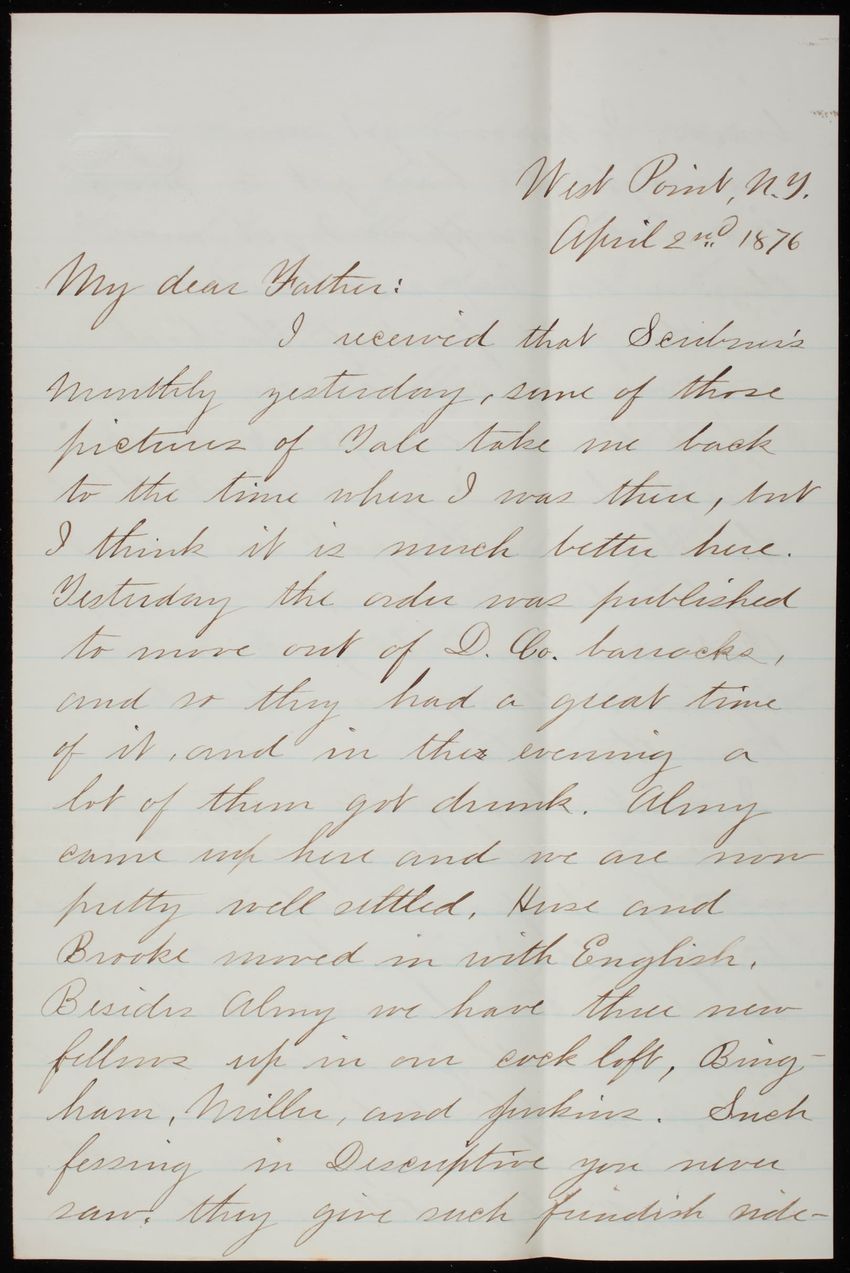 West Point, N.Y.
April 2nd 1876
My dear Father:
I received that Scribner's
Monthly yesterday, some of those
pictures of Yale take me back
to the time when I was there, but
I think it is much better here.
Yesterday the order was published
to move out of D. Co. barracks,
and so they had a great time
of it, and in the evening a
lot of them got drunk. Almy
came up here and we are now
pretty well settled. Huse and
Brooke moved in with English.
Besides Almy we have three new
fellows up in our cock loft, Bing-
ham, Miller, and Jenkins. Such
fessing in Descriptive you never
saw. they give such fiendish